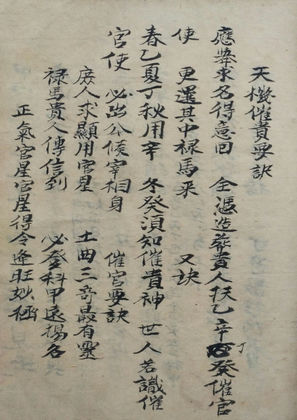 天機催貴要訣
應舉求名得意回　全憑造葬貴人扶乙辛丁癸催官
使　更遇其中祿馬來　又訣
春乙夏丁秋用辛　冬癸須知催貴神　世人若識催
官使　必出公侯宰相身　催官要訣
庶人求顯用官星　土曲三奇最有灵
祿馬貴人傳信到　必登科甲遠揚名
正氣官星官星得令逢旺妙極